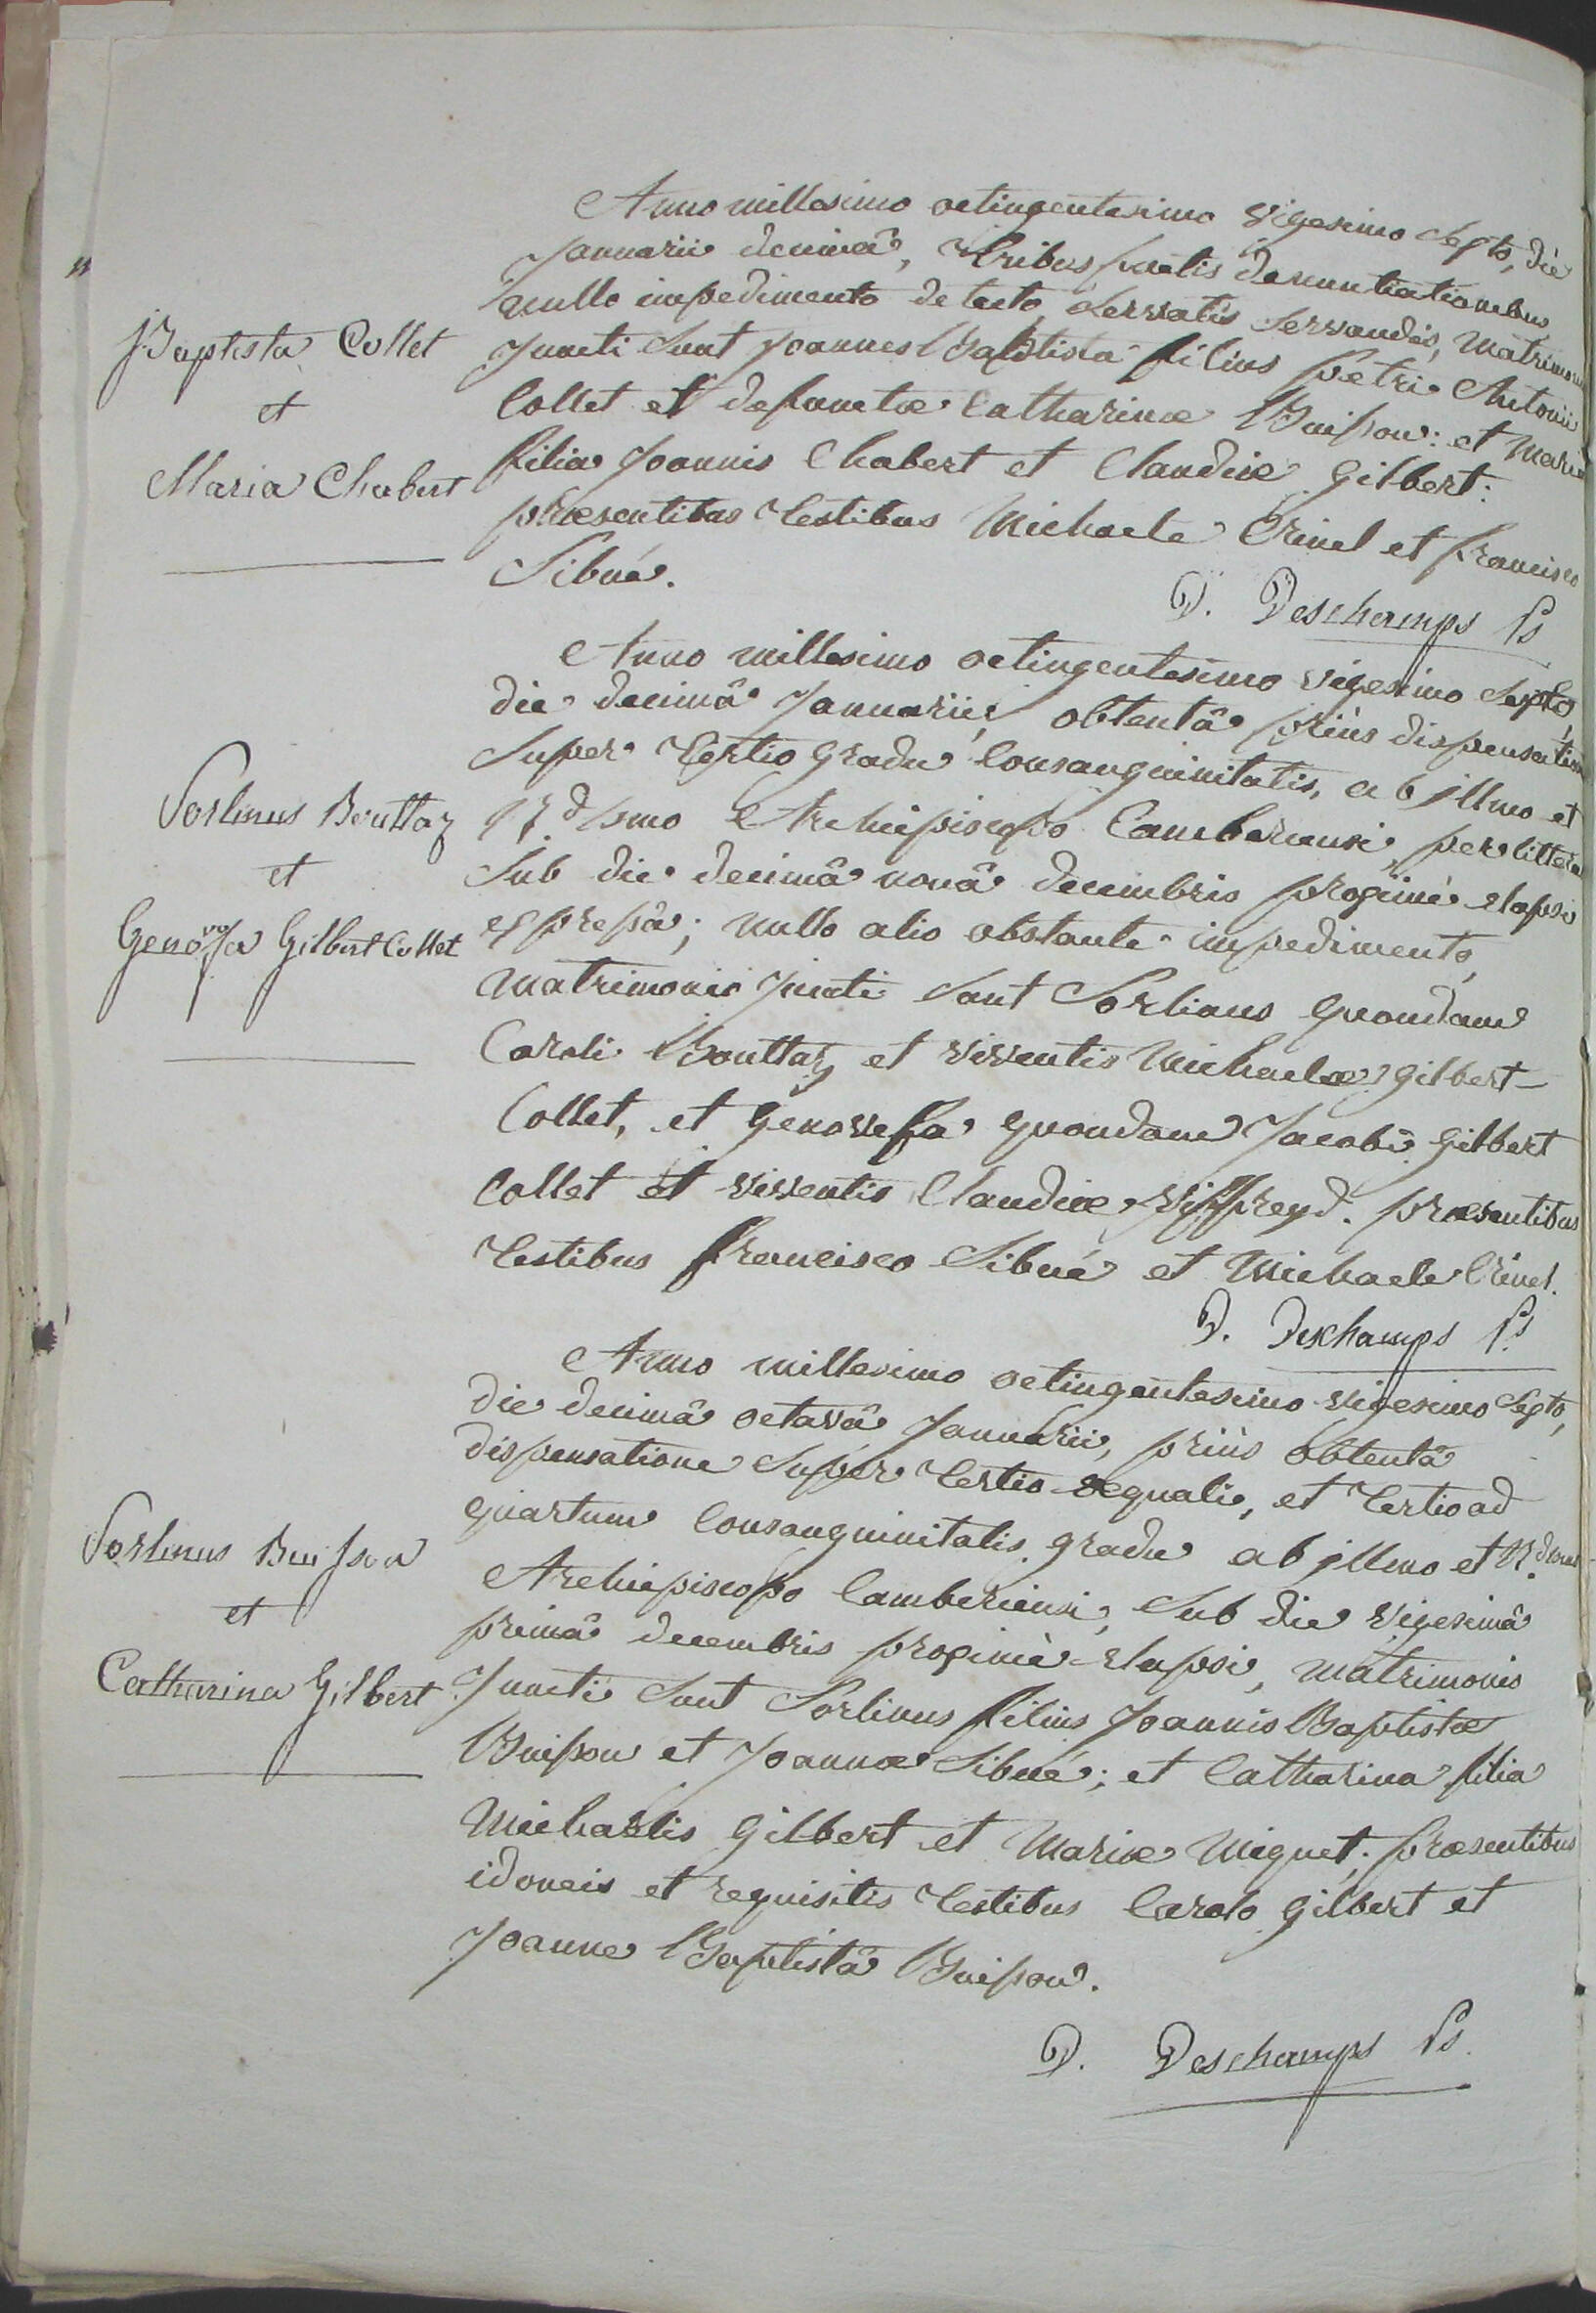 Anno millesimo octingentesimo vigesimo septo, die
Januarii decimâ, tribus factis denuntiationibus
nullo impedimento detecto, servatis servandis, matrimonio
J. Baptista Collet
et
Maria Chabert
Juncti sunt Joannes Baptista filius Petri Antonii
Collet et defunctæ Catharinæ Buisson: et Maria
filia Joannis Chabert et Claudiæ Gilbert:
præsentibus testibus Michaele Crinel et francisco
Sibué.
D. Deschamps Ps
Anno millesimo octingentesimo vigesimo septo,
die decimâ Januarii, obtentâ priùs dispensatione
super tertio gradu consanguinitatis, ab illmo et
Sorlinus Bouttaz
et
Genovefa Gilbert Collet
R.dsmo Archiepiscopo Camberiensi, per litteras
sub die decimâ nonâ decembris proximè elapsi
expressâ; nullo alio obstante impedimento,
matrimonio juncti sunt Sorlinus quondam
Caroli Bouttaz et viventis Michaelæ Gilbert-
Collet, et Genovefa quondam Jacobi Gilbert
Collet et viventis Claudiæ Viffreyd. præsentibus
testibus francisco Sibué et Michaele Crinel.
D. Deschamps Ps
Anno millesimo octingentesimo vigesimo septo,
die decimâ octavâ Januarii, priùs obtentâ
dispensatione super tertio æquali, et tertio ad
quartum consanguinitatis gradu ab illmo et R.dsmo
Sorlinus Buisson
et
Catharina Gilbert
Archiepiscopo Camberiensi, sub die vigesimâ
primâ decembris proximè elapsi, matrimonio
Juncti sunt Sorlinus filius Joannis Baptistæ
Buisson et Joannæ Sibué; et Catharina filia
Michaelis Gilbert et Mariæ Miquet; præsentibus
idoneis et requisitis testibus Carolo Gilbert et
Joanne Baptistâ Buisson.
D. Deschamps Ps.